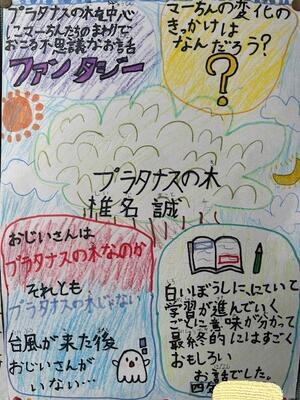 プラタナスの木を中心
にマーちんたちのまわりで
おこる不思議なお話
ファンタジー
マーちんの変化の
きっかけは
なんだろう?
?
プラタナスの木
椎名 誠
おじいさんは
プラタナスの木なのか
それとも
プラタナスの木じゃない
台風が来た後
おじいさんが
いない…
白いぼうしに、にていて
学習が進んでいく
ごとに意味が分かって
最終的にはすごく
おもしろい
お話でした。